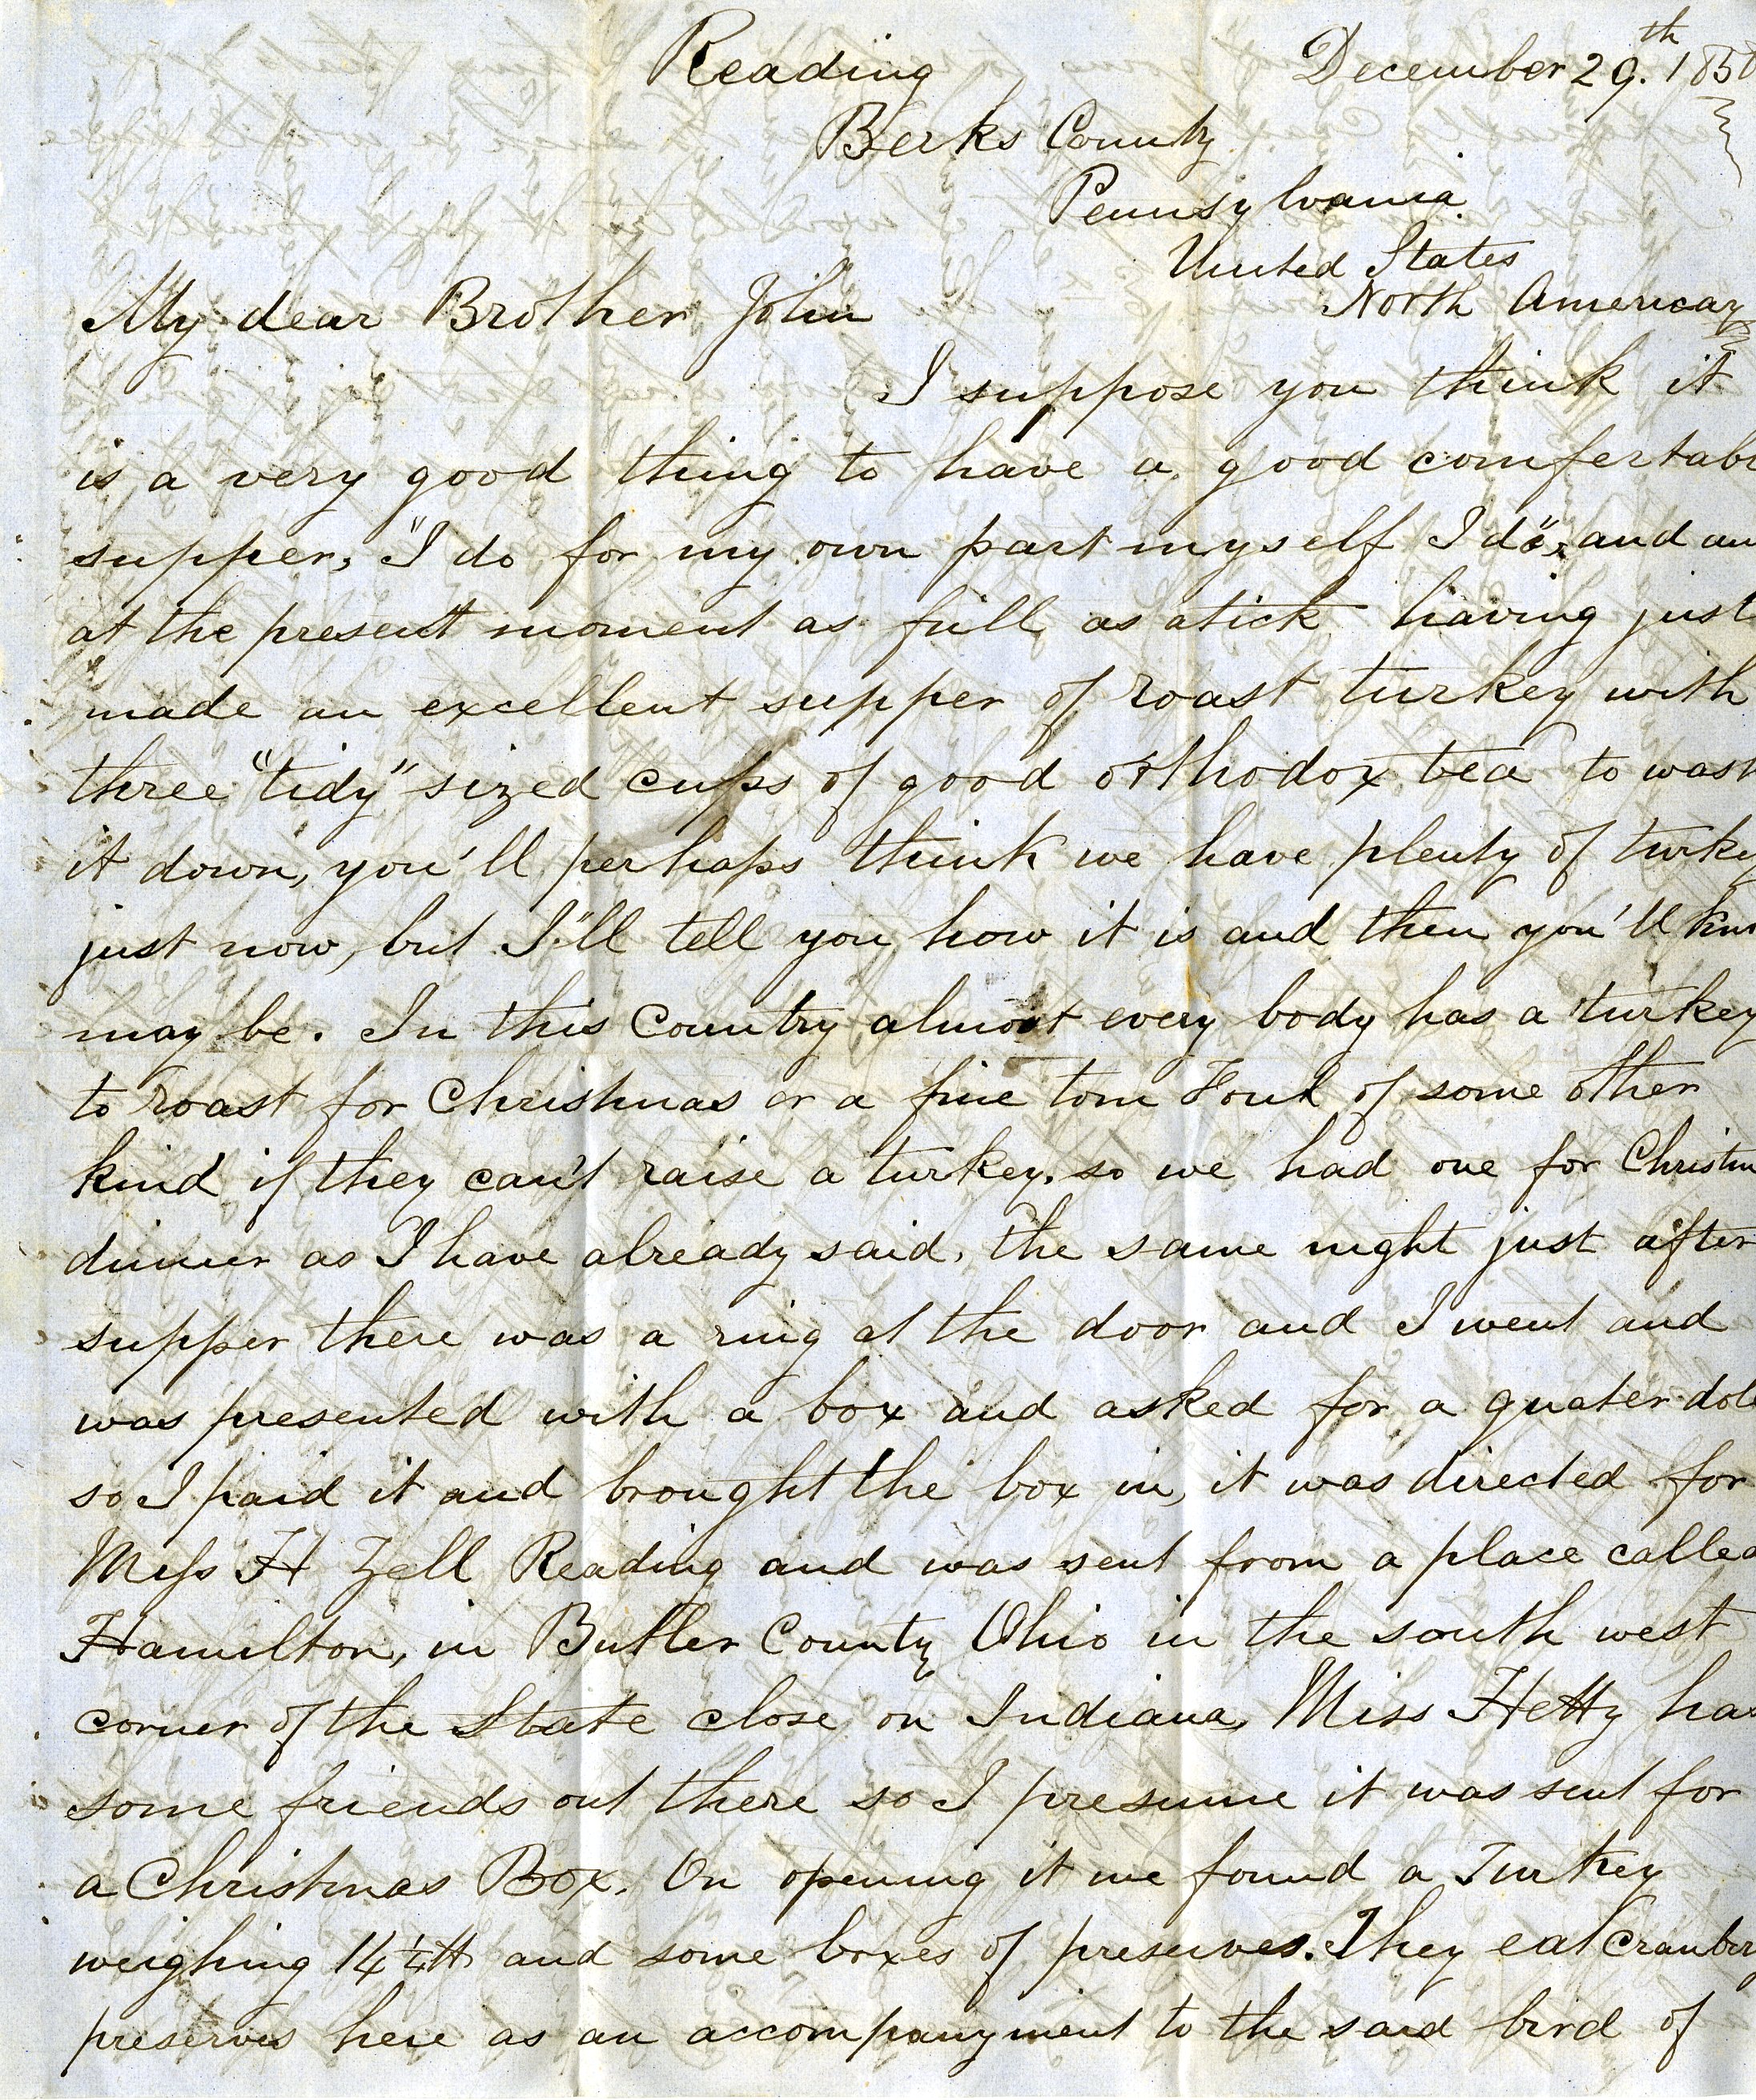 Reading December 29.th 185
Berks County
Pennsylvania.
United States
North America
My dear Brother John
I suppose you think it
is a very good thing to have a good comfertabl
supper, "I do for my own part myself I do", and am
at the present moment as full as a tick having just
made an excellent supper of roast turkey with
three "tidy" sized cups of good orthodox tea to wash
it down, you'll perhaps think we have plenty of turkey
just now, but I'll tell you how it is and then you'll kno
may be. In this Country almost every body has a turkey
to roast for Christmas or a fine tom Fowl of some other
kind if they can't raise a turkey. so we had one for Christm
dinner as I have already said, the same night just after
supper there was a ring at the door and I went and
was presented with a box and asked for a quater dol
so I paid it and brought the box in, it was directed for
Miss H Zell Reading and was sent from a place called
Hamilton, in Butler County Ohio in the south west
corner of the State close on Indiana, Miss Hetty has
some friends out there so I presume it was sent for
a Christmas Box. On opening it we found a Turkey
weighing 14 1/4 lb and some boxes of preserves. They eat Cranber
preserves here as an accompanyment to the said bird of